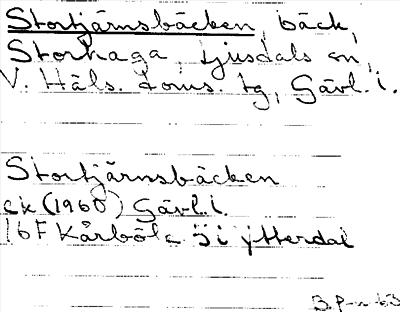 Stortjärnsbäcken, bäck,
Storhaga, Ljusdals sn,
V. Häls. doms. tg, Gävl. l.
Stortjärnsbäcken
ek (1960) Gävl. l.
16F Kårböle 5 i ytterdal